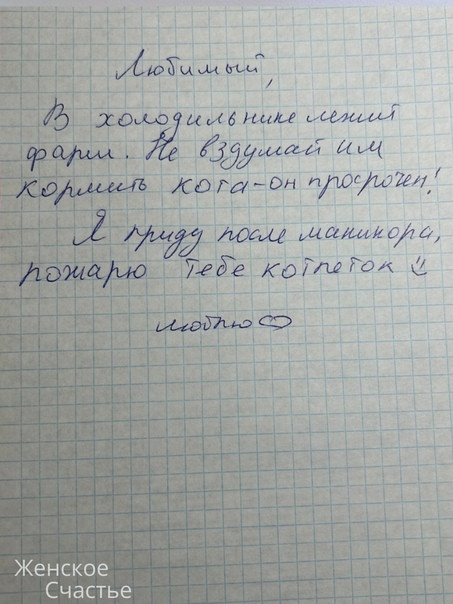 Любимый,
В холодильнике лежит
фарш. Не вздумай им
кормить кота-он просрочен!
Я приду после маникюра,
пожарю тебе котлеток
люблю
Женское
Счастье